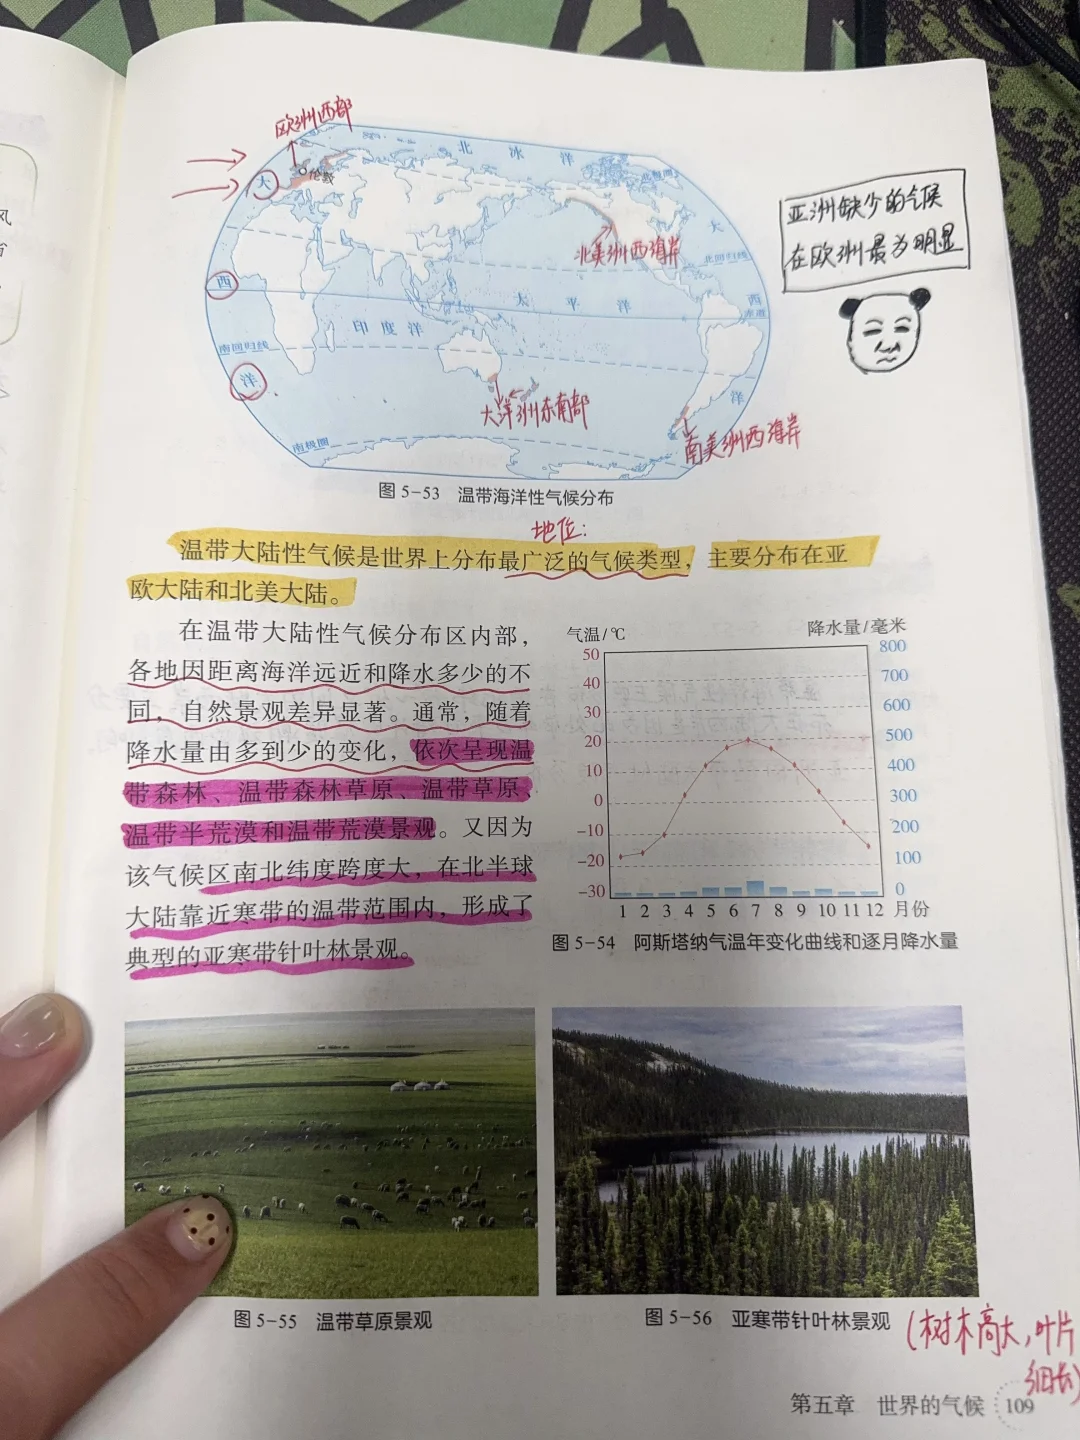 欧洲西部
北 冰 洋
大
伦敦
北极圈
大
北美洲西海岸
北回归线
西
太 平 洋
西
赤道
印 度 洋
南回归线
洋
洋
大洋洲东南部
南美洲西海岸
南极圈
亚洲缺少的气候
在欧洲最为明显
图 5-53 温带海洋性气候分布
地位:
温带大陆性气候是世界上分布最广泛的气候类型，主要分布在亚
欧大陆和北美大陆。
在温带大陆性气候分布区内部，
各地因距离海洋远近和降水多少的不
同，自然景观差异显著。通常，随着
降水量由多到少的变化，依次呈现温
带森林、温带森林草原、温带草原、
温带半荒漠和温带荒漠景观。又因为
该气候区南北纬度跨度大，在北半球
大陆靠近寒带的温带范围内，形成了
典型的亚寒带针叶林景观。
气温/℃ 降水量/毫米
50 800
40 700
30 600
20 500
10 400
0 300
-10 200
-20 100
-30 0
1 2 3 4 5 6 7 8 9 10 11 12 月份
图 5-54 阿斯塔纳气温年变化曲线和逐月降水量
图 5-55 温带草原景观
图 5-56 亚寒带针叶林景观
(树木高大,叶片
细长)
第五章 世界的气候 109